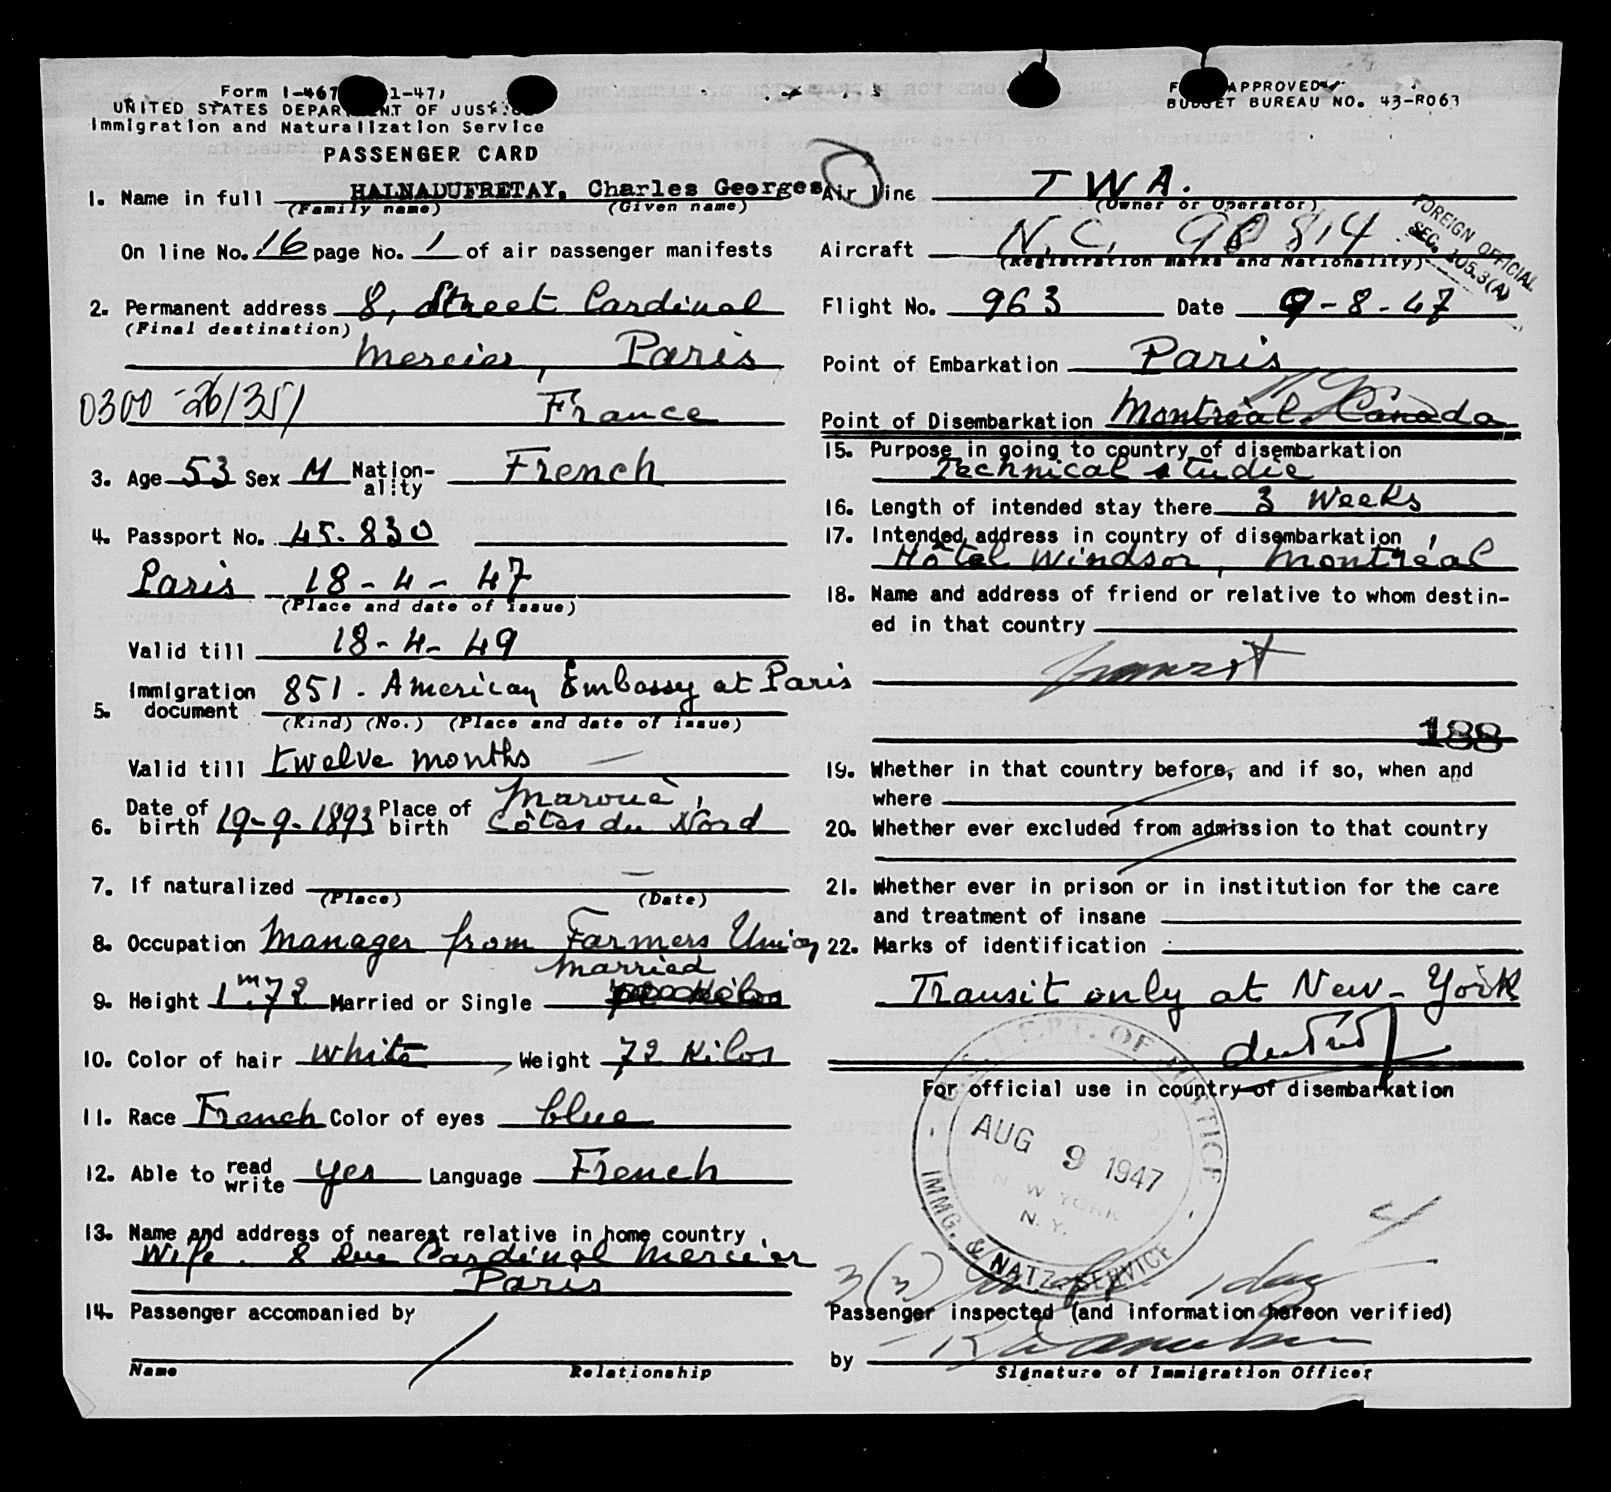 Form I-467 1-47)
UNITED STATES DEPARTMENT OF JUSTICE
Immigration and Naturalization Service
PASSENGER CARD
1. Name in full HALNADUFRETAY, Charles Georges
(Family name) (Given name)
On line No. 16 page No. 1 of air passenger manifests
2. Permanent address 8, Street Cardinal
(Final destination)
Mercier, Paris
0300-26/351 France
3. Age 53 Sex M Nation-ality French
4. Passport No. 45.830
Paris 18-4-47
(Place and date of issue)
Valid till 18-4-49
5. Immigration document 851. American Embassy at Paris
(Kind) (No.) (Place and date of issue)
Valid till twelve months
6. Date of birth 19-9-1893 Place of birth Maroué, Côtes du Nord
7. If naturalized —
(Place) (Date)
8. Occupation Manager from Farmers Union
9. Height 1m72 Married or Single Married
10. Color of hair white Weight 72 Kilos
11. Race French Color of eyes blue
12. Able to read write yes Language French
13. Name and address of nearest relative in home country
Wife. 8 Rue Cardinal Mercier
Paris
14. Passenger accompanied by
Name Relationship
FORM APPROVED
BUDGET BUREAU NO. 43-R063
Air line TWA.
(Owner or Operator)
Aircraft N.C. 90814
(Registration marks and Nationality)
FOREIGN OFFICIAL
SEC. 105.3(A)
Flight No. 963 Date 9-8-47
Point of Embarkation Paris
Point of Disembarkation Montréal Canada
15. Purpose in going to country of disembarkation
Technical studie
16. Length of intended stay there 3 Weeks
17. Intended address in country of disembarkation
Hôtel Windsor, Montréal
18. Name and address of friend or relative to whom destin-
ed in that country
Transit
188
19. Whether in that country before, and if so, when and
where
20. Whether ever excluded from admission to that country
21. Whether ever in prison or in institution for the care
and treatment of insane
22. Marks of identification
Transit only at New-York
For official use in country of disembarkation
DEPT. OF JUSTICE
AUG 9 1947
NEW YORK
N.Y.
IMMG. & NATZ. SERVICE
3(3) 1 day
Passenger inspected (and information hereon verified)
by
Signature of Immigration Officer